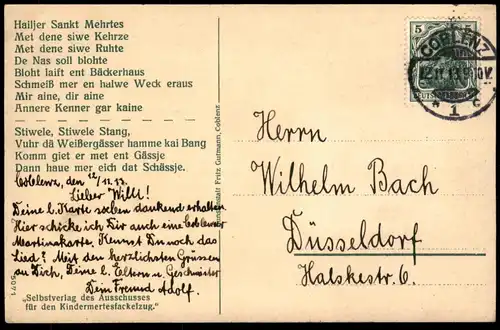 Hailjer Sankt Mehrtes
Met dene siwe Kehrze
Met dene siwe Ruhte
De Nas soll blohte
Bloht laift ent Bäckerhaus
Schmeiß mer en halwe Weck eraus
Mir aine, dir aine
Annere Kenner gar kaine
Stiwele, Stiwele Stang,
Vuhr dä Weißergässer hamme kai Bang
Komm giet er met ent Gässje
Dann haue mer eich dat Schässje.
Coblenz, den 12/11. 13.
Lieber Willi!
Deine l. Karte soeben dankend erhalten
Hier schicke ich Dir auch eine Coblenzer
Martinskarte. Kennst Du noch das
Lied? Mit den herzlichsten Grüssen
an Dich, Deine l. Eltern u. Geschwister
Dein Freund Adolf.
"Selbstverlag des Ausschusses
für den Kindermertesfackelzug."
5071
Kunstanstalt Fritz Gutmann, Coblenz
5 5
COBLENZ
12.11.13.9-10V.
* 1 c
Herrn
Wilhelm Bach
Düsseldorf
Halskestr. 6.